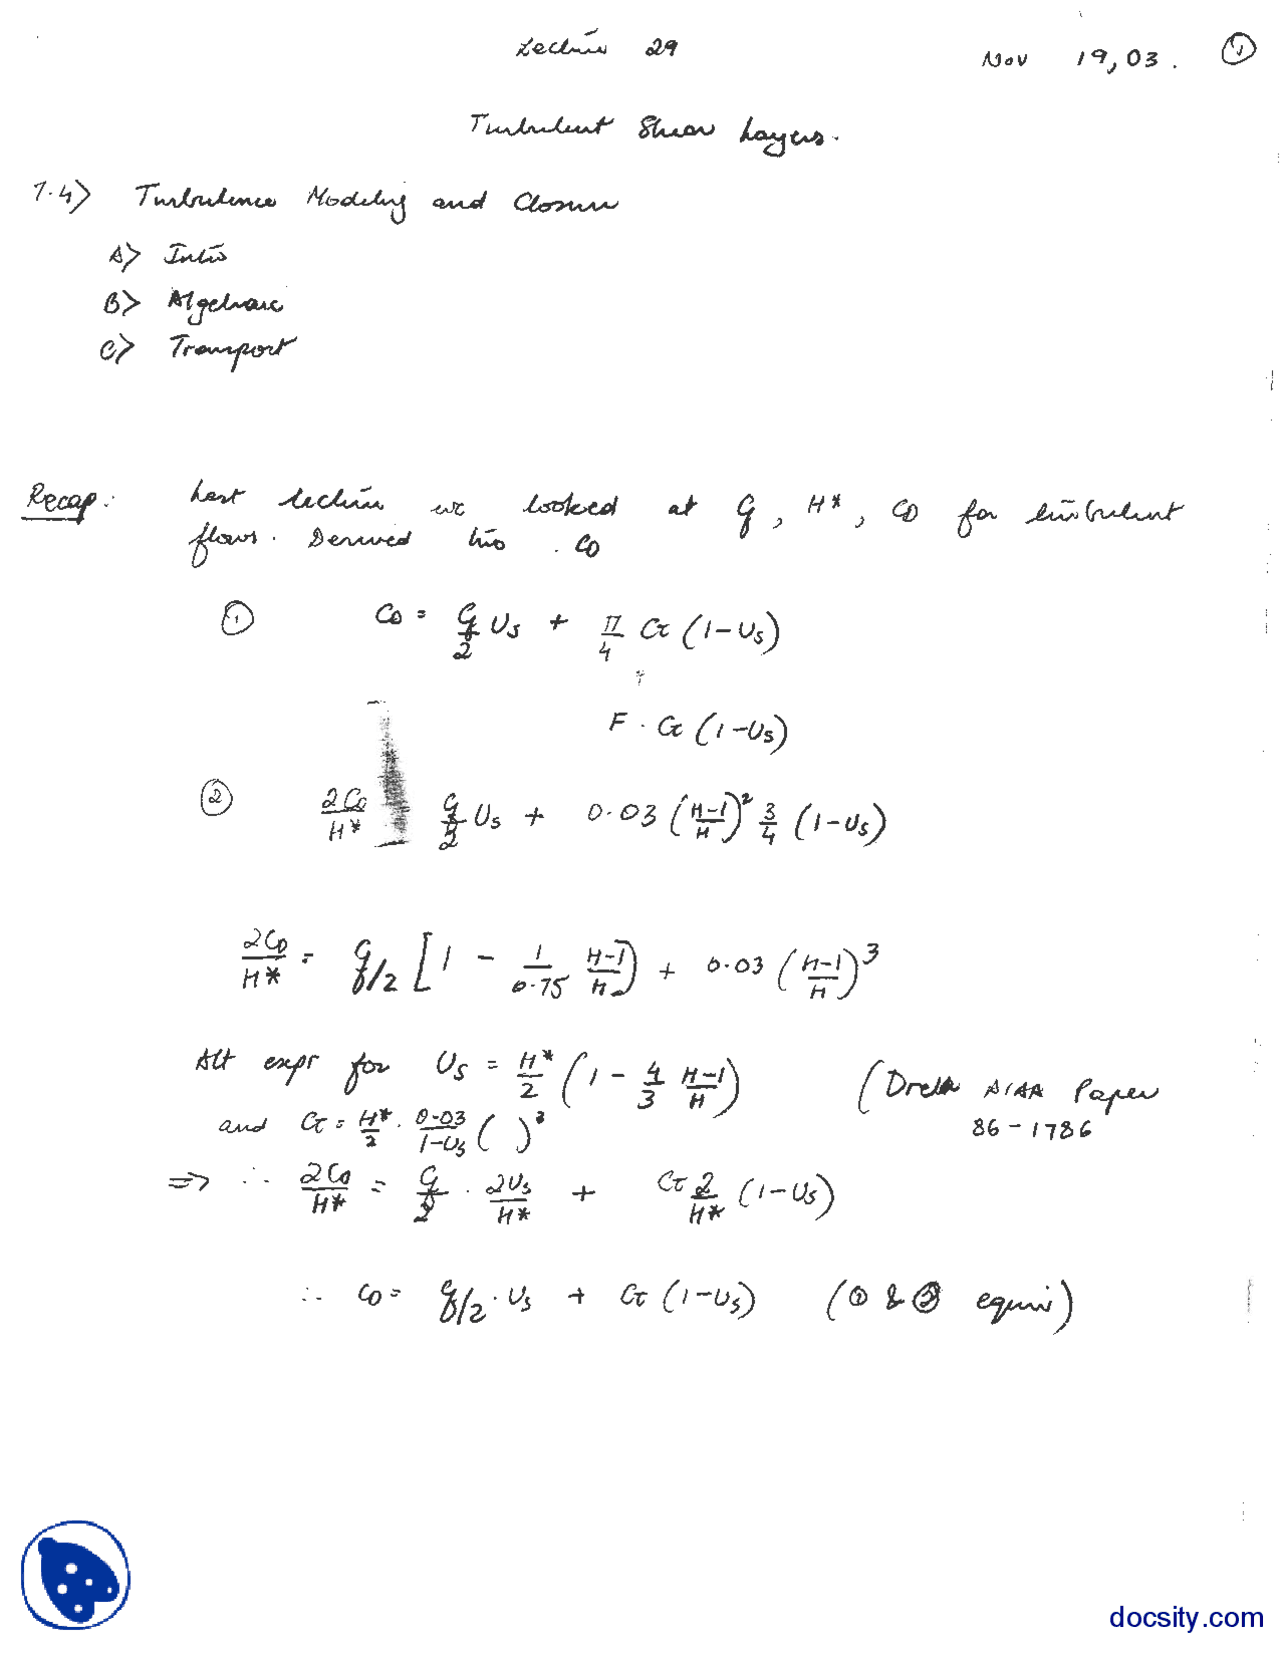 Lecture 29
Nov 19, 03. ①
Turbulent Shear Layers.
7.4) Turbulence Modeling and Closure
A) Intro
B) Algebraic
C) Transport
Recap: Last lecture we looked at Cf, H*, CD for turbulent
flows. Derived two CD
① CD = Cf/2 Us + π/4 Cτ (1-Us)
F · Cτ (1-Us)
② 2CD/H* Cf/2 Us + 0.03 (H-1/H)² 3/4 (1-Us)
2CD/H* = Cf/2 [1 - 1/0.75 H-1/H] + 0.03 (H-1/H)³
Alt expr for Us = H*/2 (1 - 4/3 H-1/H) (Drela AIAA Paper
86-1786
and Cτ = H*/2 · 0.03/1-Us ( )³
=> ∴ 2CD/H* = Cf/2 · 2Us/H* + Cτ 2/H* (1-Us)
∴ CD = Cf/2 · Us + Cτ (1-Us) (① & ② equiv)
docsity.com